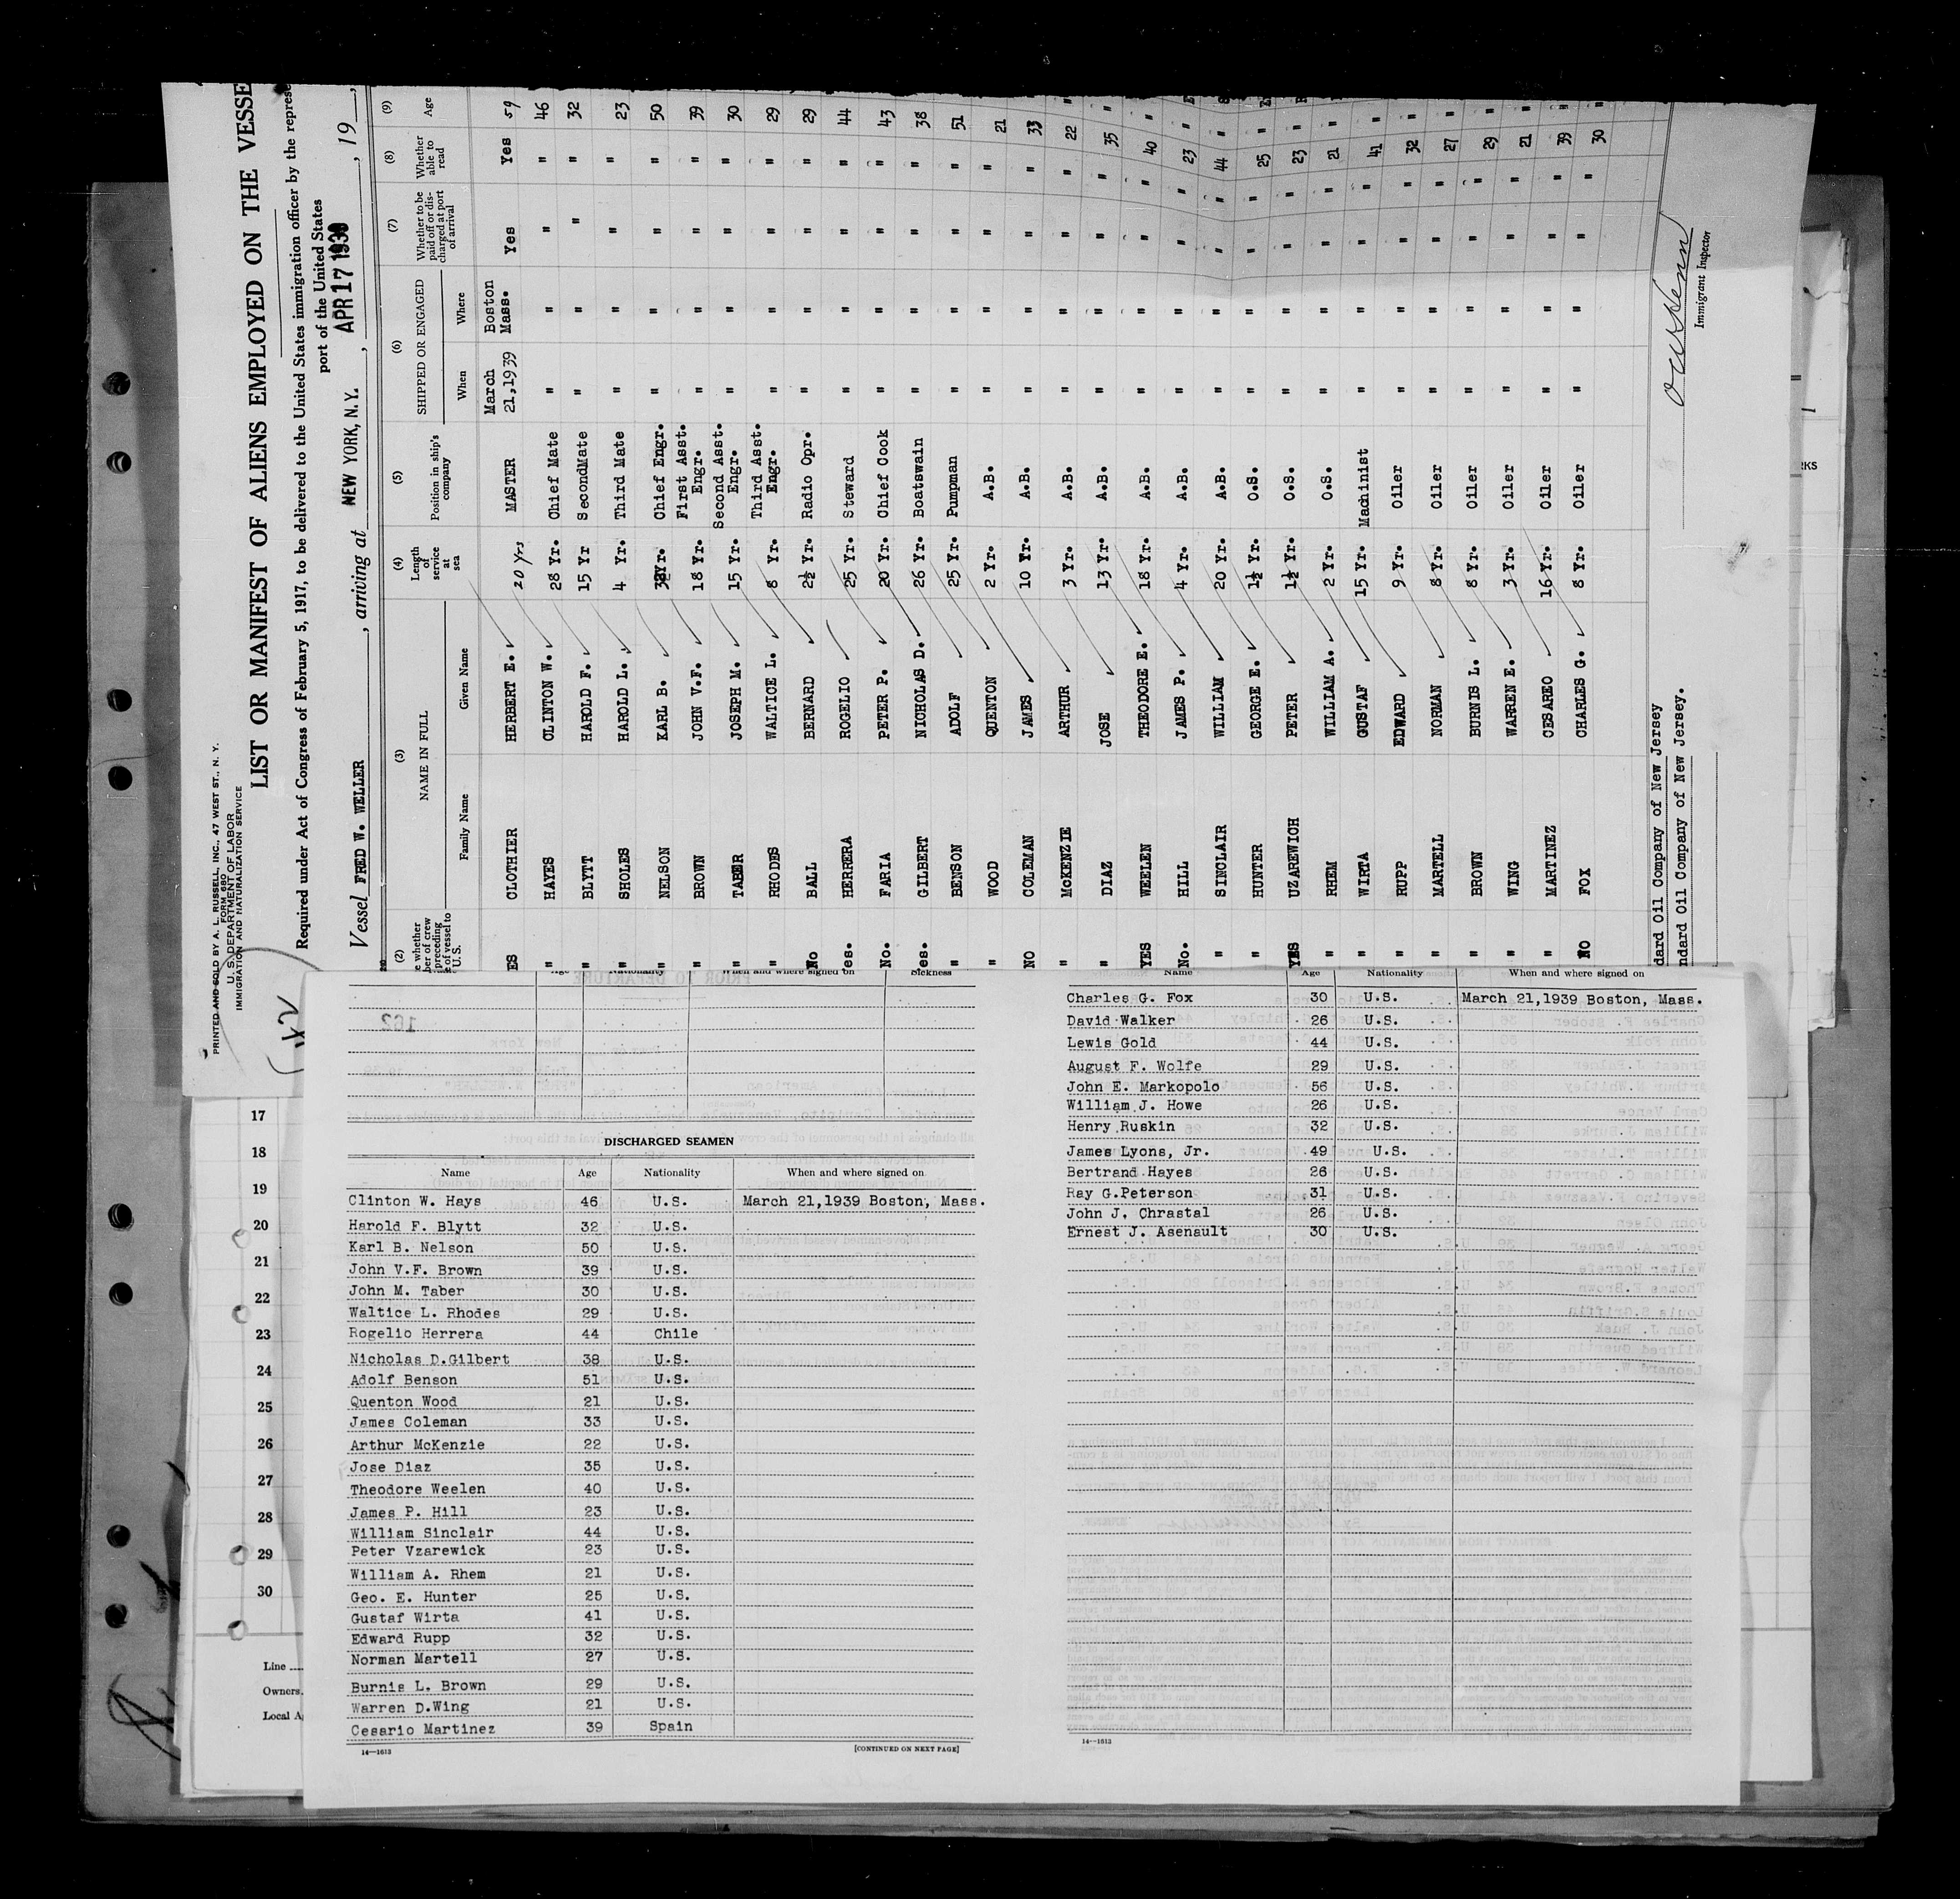 PRINTED AND SOLD BY A. L. RUSSELL, INC., 47 WEST ST., N. Y.
FORM 680
U. S. DEPARTMENT OF LABOR
IMMIGRATION AND NATURALIZATION SERVICE
LIST OR MANIFEST OF ALIENS EMPLOYED ON THE VESSE
Required under Act of Congress of February 5, 1917, to be delivered to the United States immigration officer by the represe
port of the United States
Vessel FRED W. WELLER, arriving at NEW YORK, N.Y., APR 17 1939, 19
(2) (3) (4) (5) (6) (7) (8) (9)
NAME IN FULL
Family Name Given Name
Length of service at sea
Position in ship's company
SHIPPED OR ENGAGED
When Where
Whether to be paid off or discharged at port of arrival
Whether able to read
Age
ES CLOTHIER HERBERT E. 20 Yrs MASTER March 21,1939 Boston Mass. Yes Yes 59
" HAYES CLINTON W. 28 Yr. Chief Mate " " " " 46
" BLYTT HAROLD F. 15 Yr SecondMate " " " " 32
" SHOLES HAROLD L. 4 Yr. Third Mate " " " " 23
" NELSON KARL B. Yr. Chief Engr. " " " " 50
" BROWN JOHN V.F. 18 Yr. First Asst. Engr. " " " " 39
" TABER JOSEPH M. 15 Yr. Second Asst. Engr. " " " " 30
" RHODES WALTICE L. 8 Yr. Third Asst. Engr. " " " " 29
No BALL BERNARD 2½ Yr. Radio Opr. " " " " 29
es. HERRERA ROGELIO 25 Yr. Steward " " " " 44
No. FARIA PETER P. 20 Yr. Chief Cook " " " " 43
es. GILBERT NICHOLAS D. 26 Yr. Boatswain " " " " 38
" BENSON ADOLF 25 Yr. Pumpman " " " " 51
" WOOD QUENTON 2 Yr. A.B. " " " " 21
NO COLEMAN JAMES 10 Yr. A.B. " " " " 33
" McKENZIE ARTHUR 3 Yr. A.B. " " " " 22
" DIAZ JOSE 13 Yr. A.B. " " " " 35
YES WEELEN THEODORE E. 18 Yr. A.B. " " " " 40
No. HILL JAMES P. 4 Yr. A.B. " " " " 23
" SINCLAIR WILLIAM 20 Yr. A.B. " " " " 44
" HUNTER GEORGE E. 1½ Yr. O.S. " " " " 25
YES UZAREWICH PETER 1½ Yr. O.S. " " " " 23
" RHEM WILLIAM A. 2 Yr. O.S. " " " " 21
" WIRTA GUSTAF 15 Yr. Machinist " " " " 41
" RUPP EDWARD 9 Yr. Oiler " " " " 32
" MARTELL NORMAN 8 Yr. Oiler " " " " 27
" BROWN BURNIS L. 8 Yr. Oiler " " " " 29
" WING WARREN E. 3 Yr. Oiler " " " " 21
" MARTINEZ CESAREO 16 Yr. Oiler " " " " 39
NO FOX CHARLES G. 8 Yr. Oiler " " " " 30
dard Oil Company of New Jersey
ndard Oil Company of New Jersey.
Immigrant Inspector
17
18
19
20
21
22
23
24
25
26
27
28
29
30
Line
Owners
Local A
RKS
Age Nationality When and where signed on Sickness
DISCHARGED SEAMEN
Name Age Nationality When and where signed on
Clinton W. Hays 46 U.S. March 21,1939 Boston, Mass.
Harold F. Blytt 32 U.S.
Karl B. Nelson 50 U.S.
John V.F. Brown 39 U.S.
John M. Taber 30 U.S.
Waltice L. Rhodes 29 U.S.
Rogelio Herrera 44 Chile
Nicholas D.Gilbert 38 U.S.
Adolf Benson 51 U.S.
Quenton Wood 21 U.S.
James Coleman 33 U.S.
Arthur McKenzie 22 U.S.
Jose Diaz 35 U.S.
Theodore Weelen 40 U.S.
James P. Hill 23 U.S.
William Sinclair 44 U.S.
Peter Vzarewick 23 U.S.
William A. Rhem 21 U.S.
Geo. E. Hunter 25 U.S.
Gustaf Wirta 41 U.S.
Edward Rupp 32 U.S.
Norman Martell 27 U.S.
Burnis L. Brown 29 U.S.
Warren D.Wing 21 U.S.
Cesario Martinez 39 Spain
14—1613 [CONTINUED ON NEXT PAGE]
Name Age Nationality When and where signed on
Charles G. Fox 30 U.S. March 21,1939 Boston, Mass.
David Walker 26 U.S.
Lewis Gold 44 U.S.
August F. Wolfe 29 U.S.
John E. Markopolo 56 U.S.
William J. Howe 26 U.S.
Henry Ruskin 32 U.S.
James Lyons, Jr. 49 U.S.
Bertrand Hayes 26 U.S.
Ray G.Peterson 31 U.S.
John J. Chrastal 26 U.S.
Ernest J. Asenault 30 U.S.
14—1613